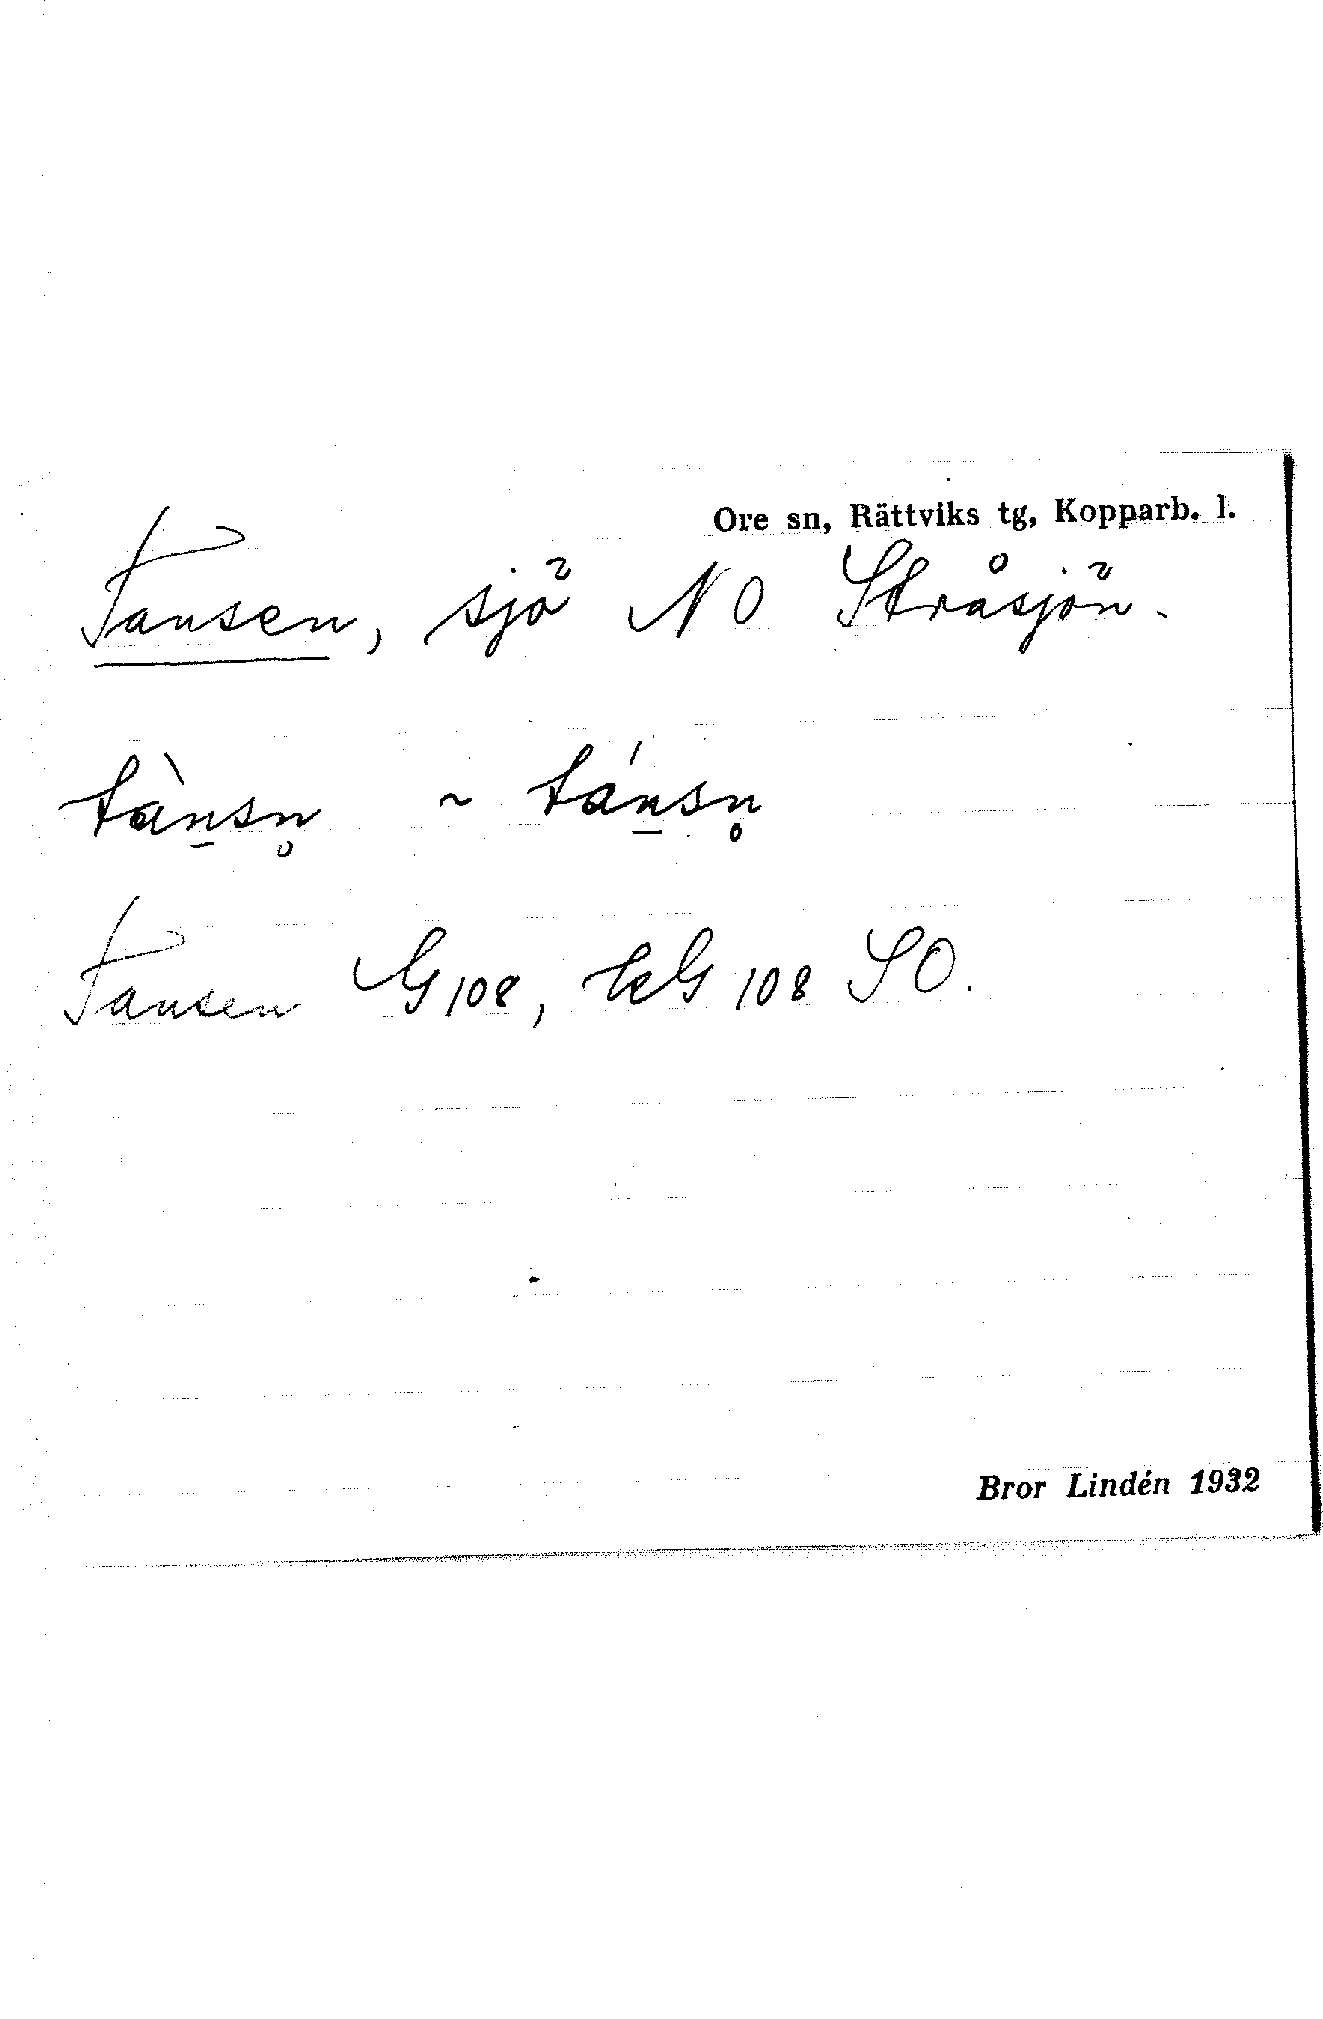 Ore sn, Rättviks tg, Kopparb. l.
Tansen, sjö NO Stråsjön.
tàn̲sn̥ ~ tán̲sn̥
Tansen G 108, kG 108 SO.
Bror Lindén 1932